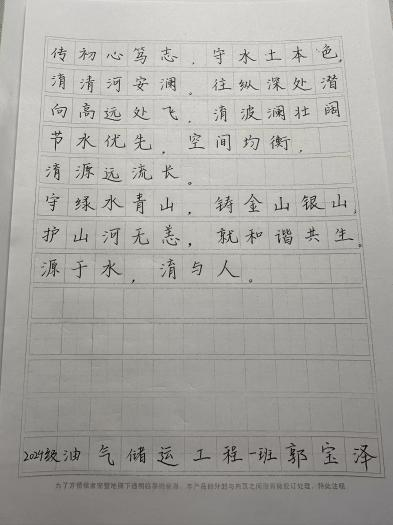 传初心笃志，守水土本色。
淯清河安澜。往纵深处潜
向高远处飞，淯波澜壮阔
节水优先，空间均衡，
淯源远流长。
守绿水青山，铸金山银山，
护山河无恙，就和谐共生。
源于水，淯与人。
2024级油气储运工程一班郭宝泽